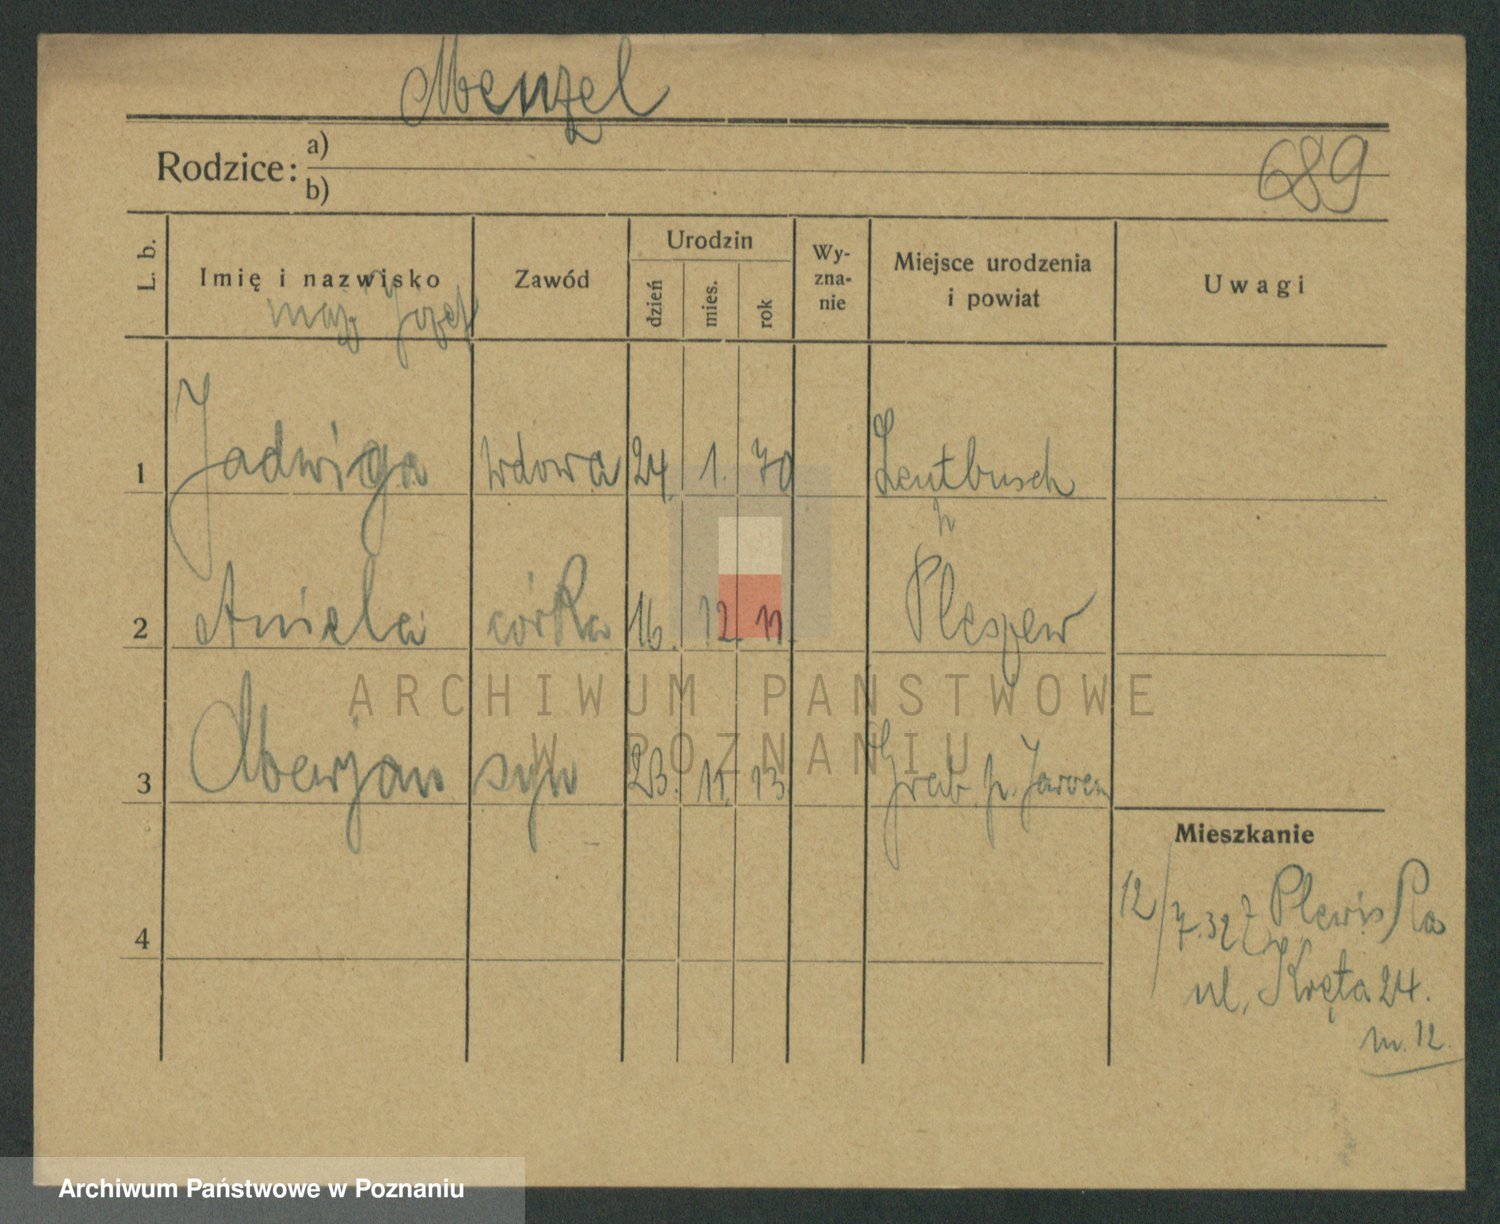 Menzel
Rodzice: a)
b)
689
L. b.
Imię i nazwisko
Zawód
Urodzin
dzień
mies.
rok
Wy-
zna-
nie
Miejsce urodzenia
i powiat
Uwagi
mąż Józef
1 Jadwiga wdowa 24. 1. 70 Lentbusch
p
2 Aniela córka 16. 12. 11. Pleszew
3 Marjan syn 23. 11. 13. Grab. p. Jarocen
4
Mieszkanie
12/7.32 z Plewiska
ul. Kręta 24.
m. 12.
ARCHIWUM PAŃSTWOWE
W POZNANIU
Archiwum Państwowe w Poznaniu